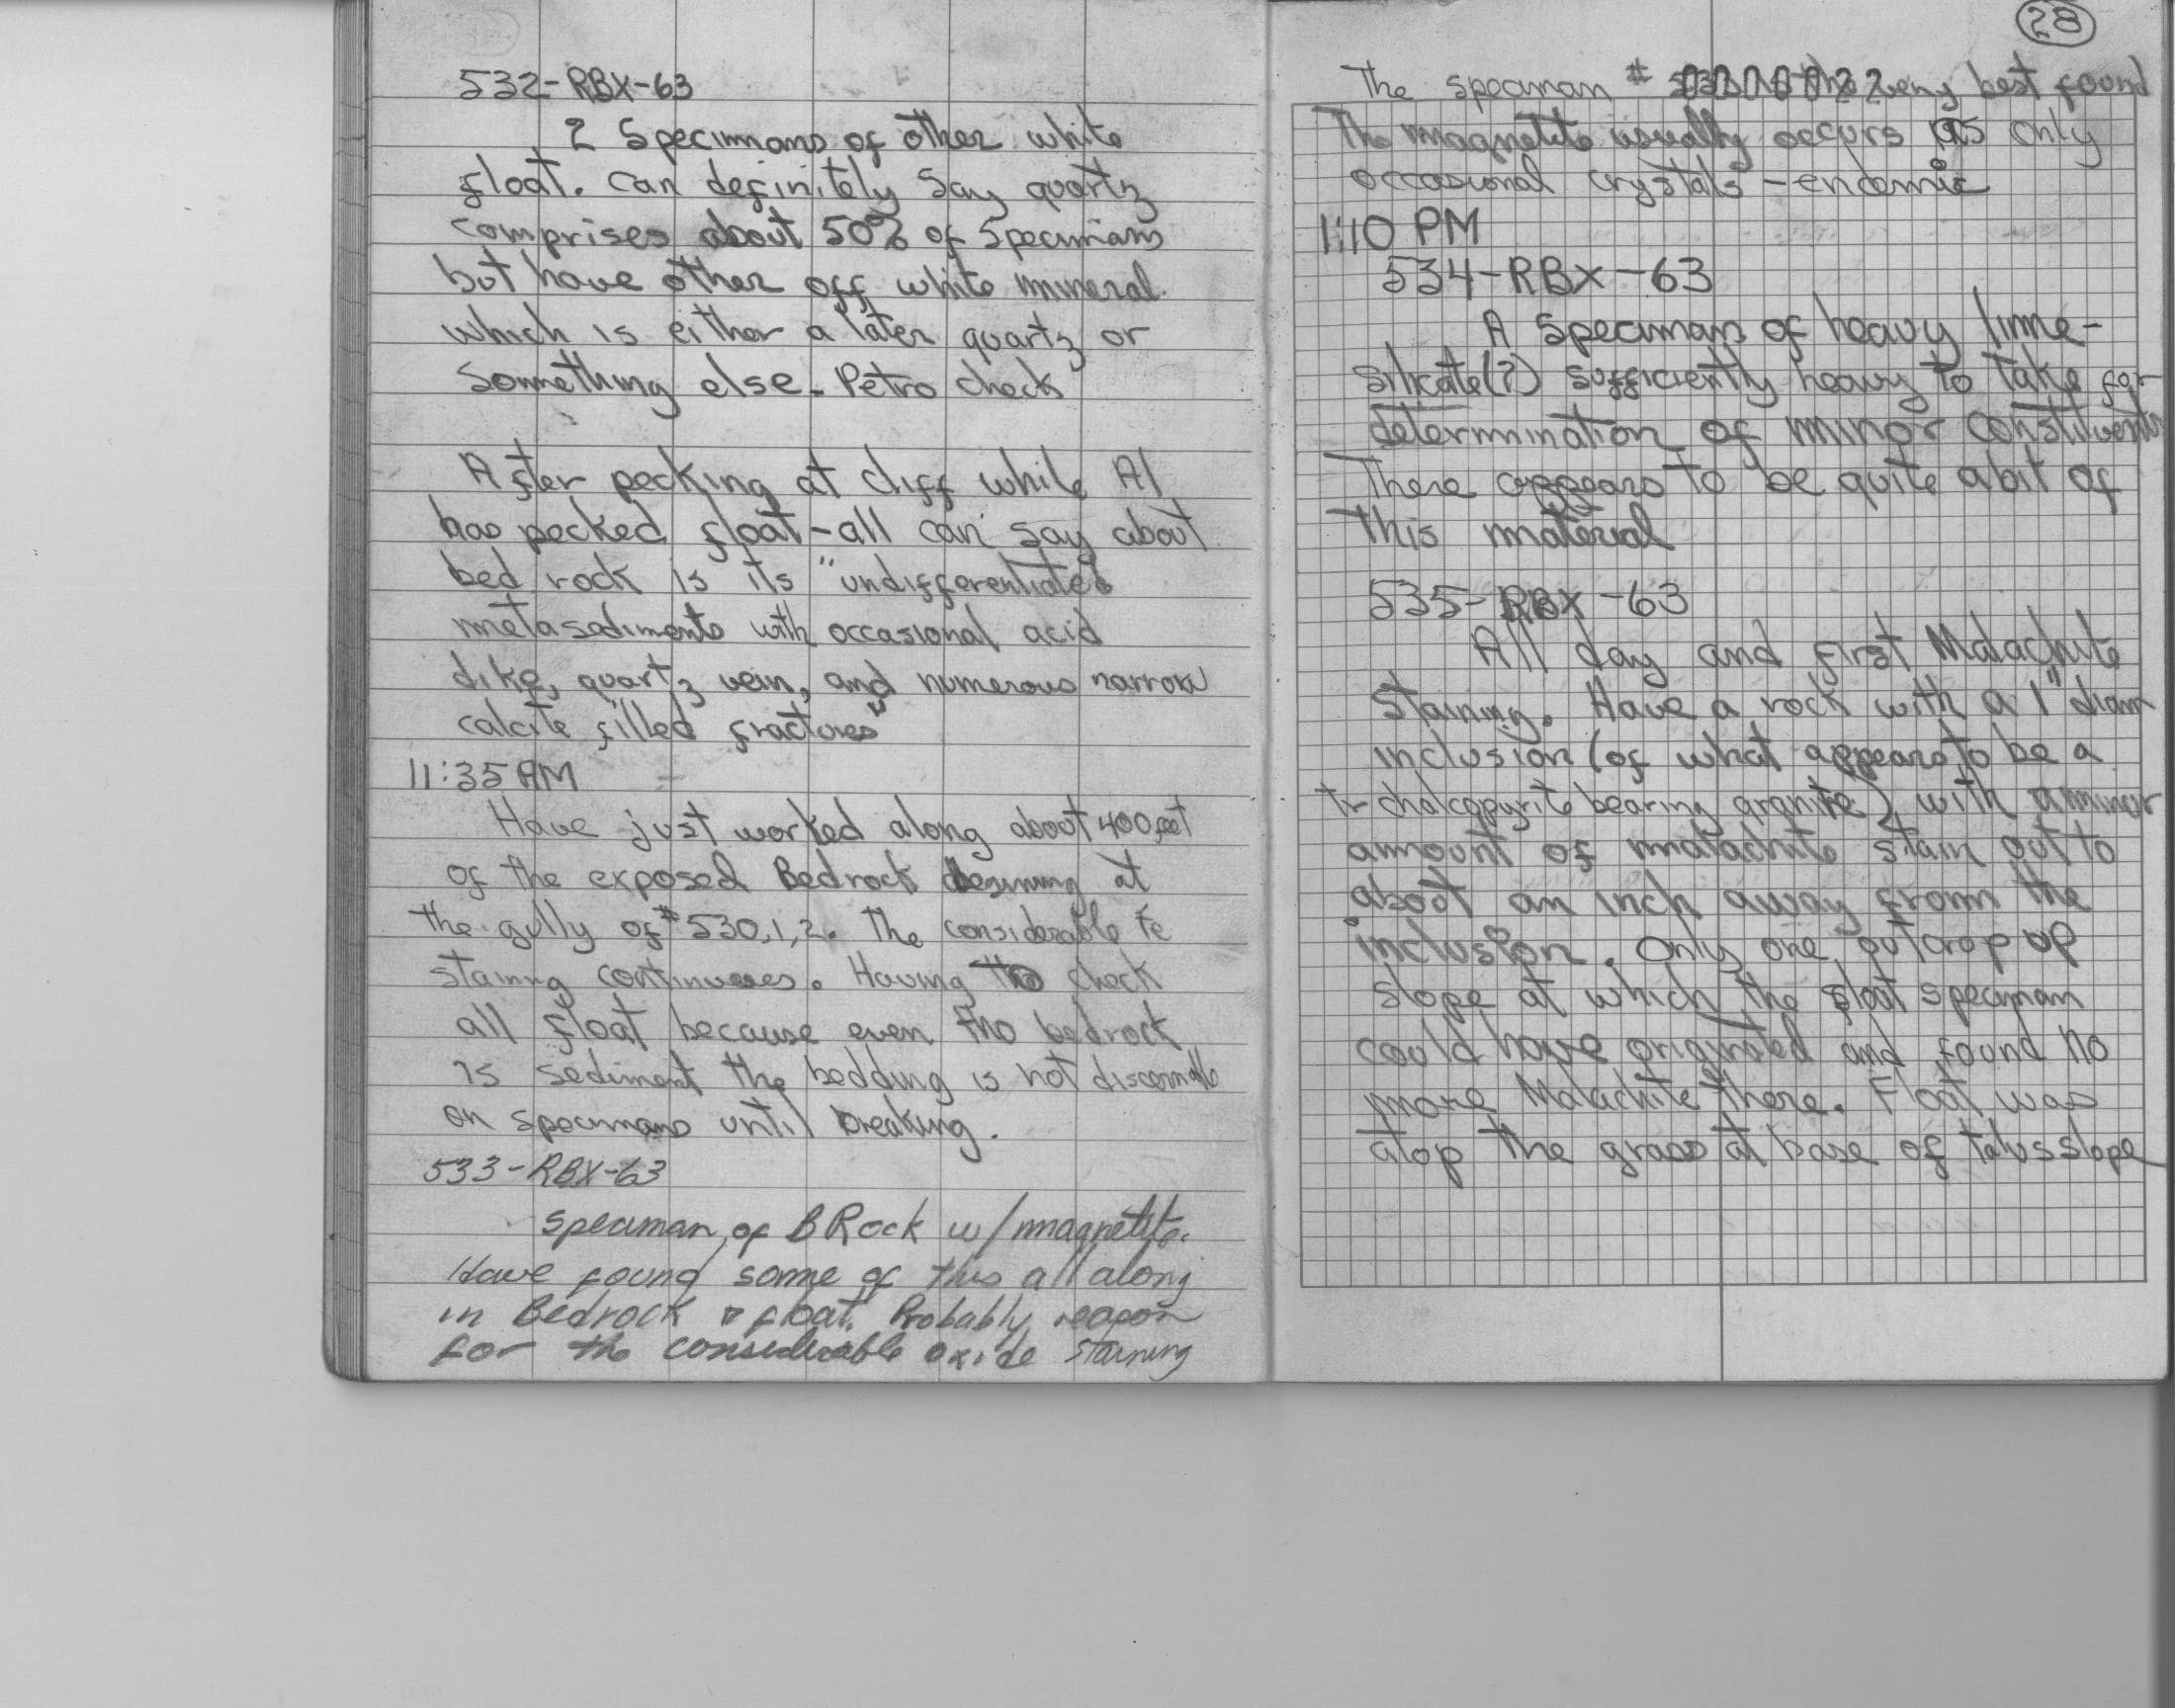 532-RBX-63
2 Specimans of other white
float. Can definitely say quartz
comprises about 50% of Specimans
but have other off white mineral
which is either a later quartz or
Something else - Petro check
After pecking at cliff while Al
has pecked float - all can say about
bed rock is its "undifferentiated
metasediments with occasional acid
dike, quartz vein, and numerous narrow
calcite filled fractures"
11:35 AM
Have just worked along about 400 feet
of the exposed Bedrock beginning at
the gully of #530,1,2. The considerable Fe
staining continues. Having to check
all float because even tho bedrock
is sediment the bedding is not discernable
on specimans until breaking.
533-RBX-63
Speciman of BRock w/ magnetite.
Have found some of this all along
in Bedrock & float. Probably reason
for the considerable oxide staining
28
The speciman # very best found
The magnetite usually occurs as only
occasional crystals - endemic
1:10 PM
534-RBX-63
A Speciman of heavy lime-
silicate(?) sufficiently heavy to take for
determination of minor constituents
There appears to be quite abit of
this material
535-RBX-63
All day and first Malachite
staining. Have a rock with a 1" diam
inclusion (of what appears to be a
tr chalcopyrite bearing granite) with a minor
amount of malachite stain out to
about an inch away from the
inclusion. Only one outcrop up
slope at which the float speciman
could have originated and found no
more Malachite there. Float was
atop the grass at base of talus slope